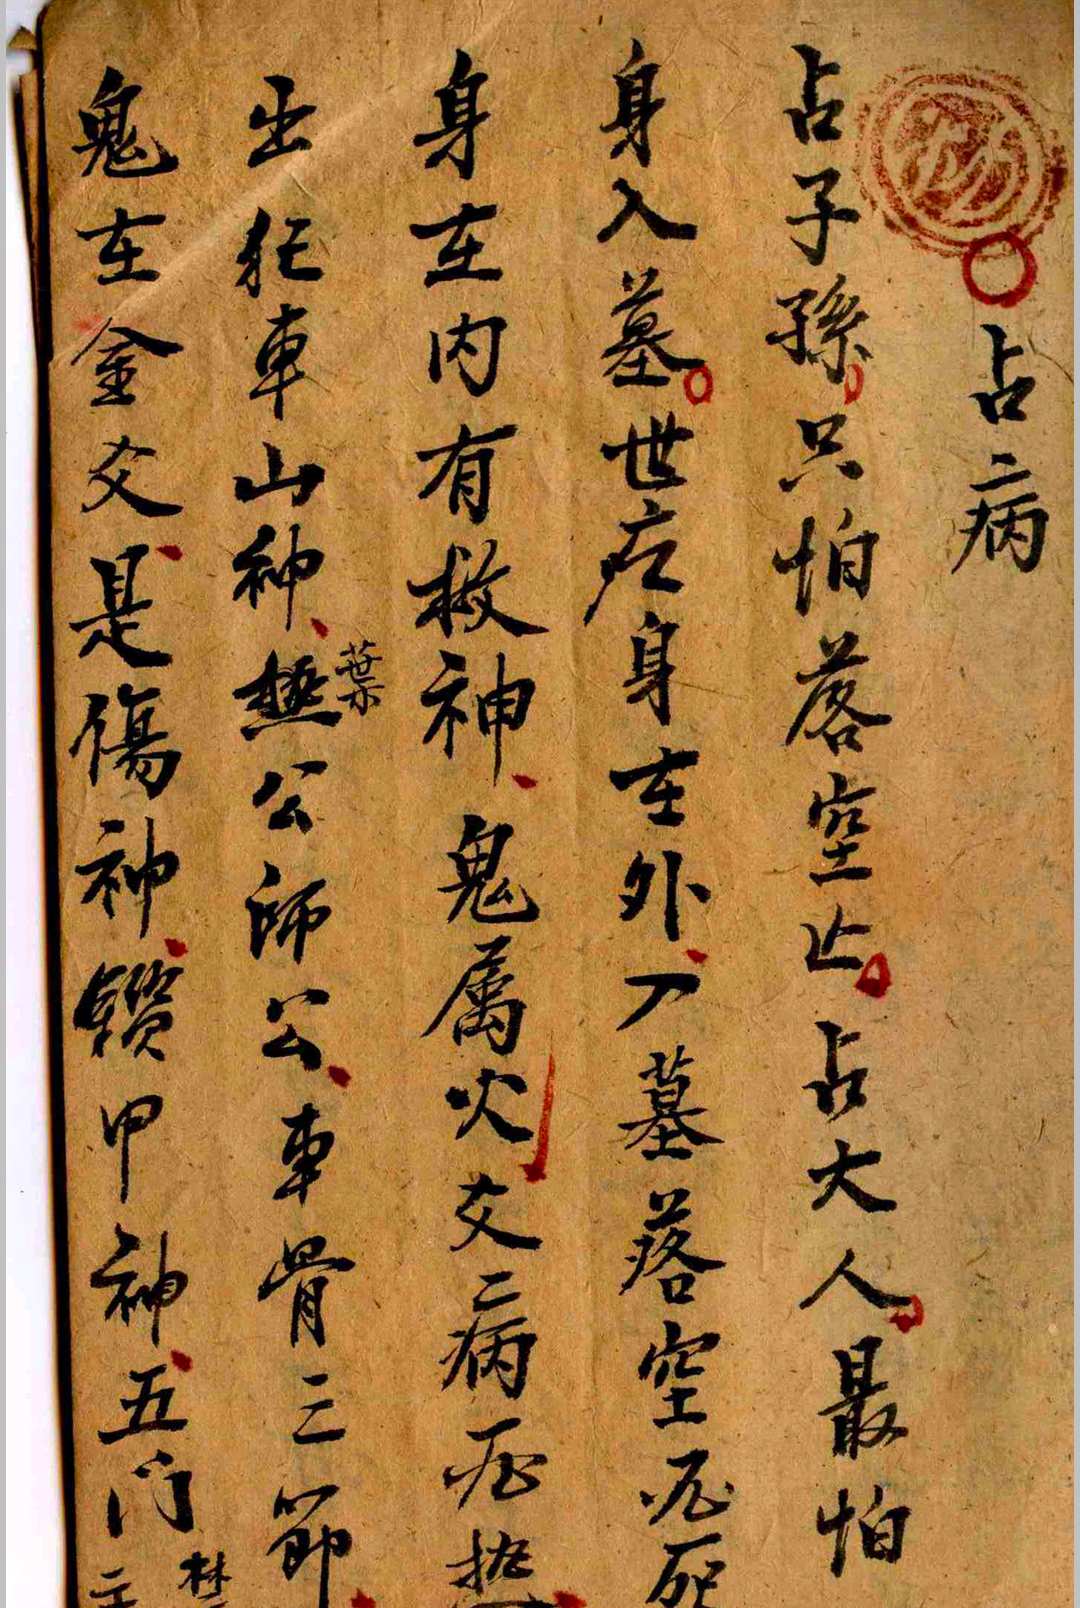 占病
占子孫只怕落空亡占大人最怕
身入墓世应身在外入墓落空死
身在内有救神鬼属火爻病
出犯車山神公師公車骨三節
葉
鬼在金爻是傷神鑽甲神五门